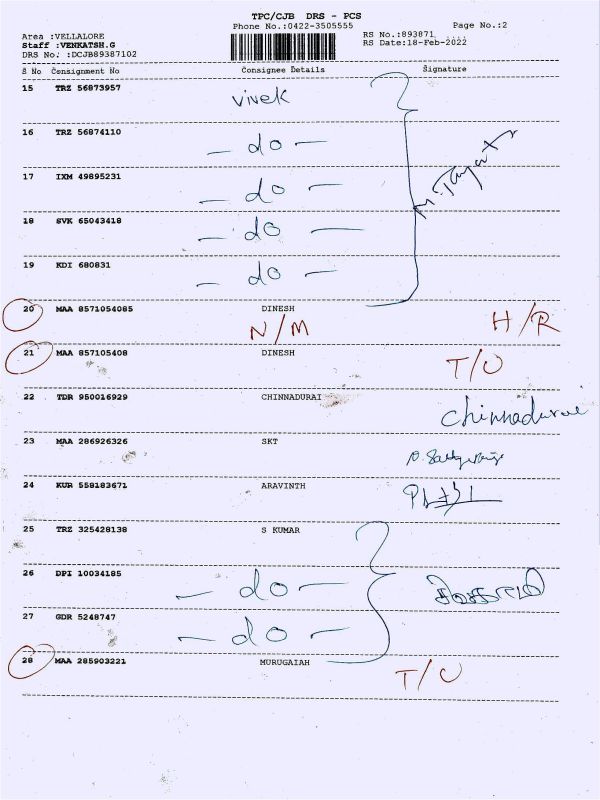 TPC/CJB DRS - PCS
Phone No.:0422-3505555
Page No.:2
Area :VELLALORE
RS No.:893871 ....
Staff :VENKATSH.G
RS Date:18-Feb-2022
DRS No. :DCJB89387102
S No Consignment No Consignee Details Signature
15 TRZ 56873957 vivek
16 TRZ 56874110 - do -
17 IXM 49895231 - do -
18 SVK 65043418 - do -
19 KDI 680831 - do -
20 MAA 8571054085 DINESH
N/M H/R
21 MAA 857105408 DINESH T/O
22 TDR 950016929 CHINNADURAI
Chinnadurai
23 MAA 286926326 SKT
24 KUR 558183671 ARAVINTH
25 TRZ 325428138 S KUMAR
26 DPI 10034185 - do -
27 GDR 5248747 - do -
28 MAA 285903221 MURUGAIAH T/O